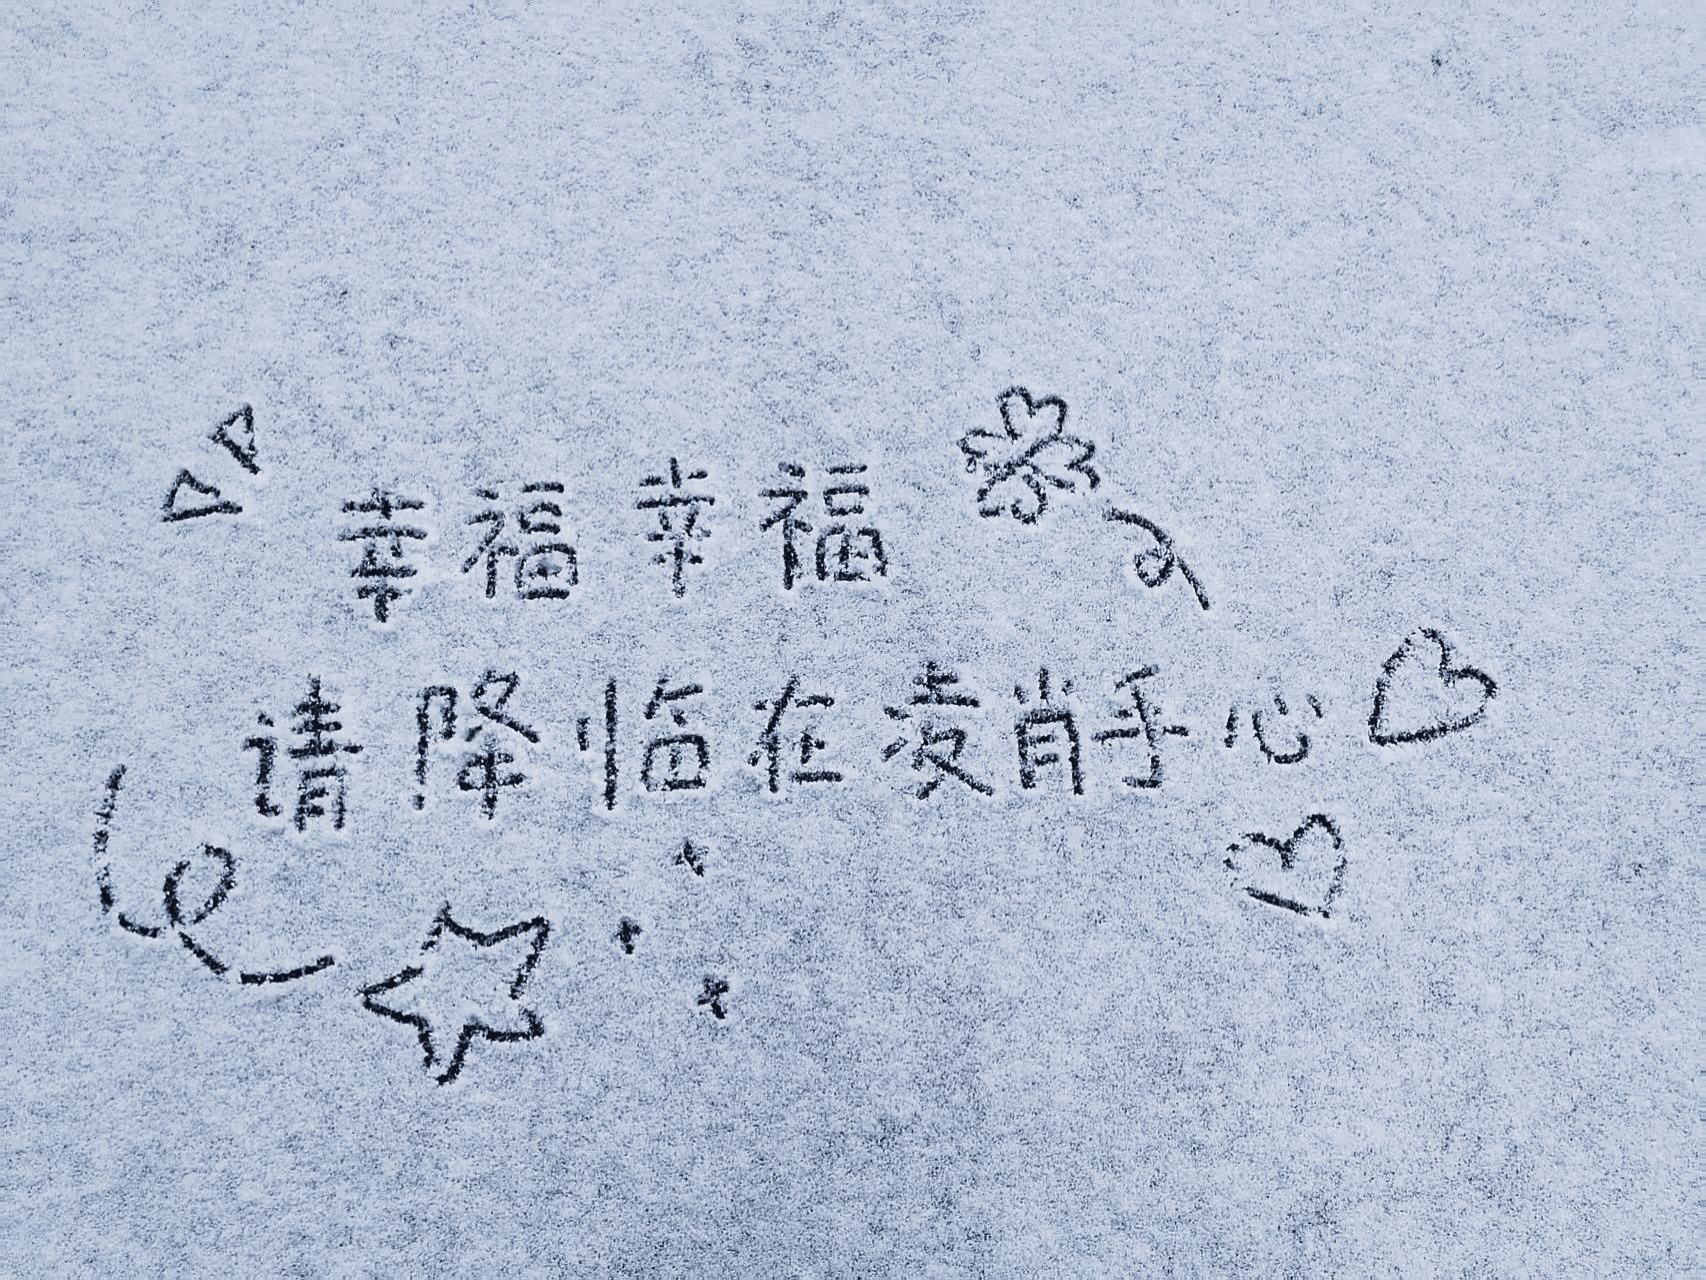 幸福幸福
请降临在凌肖手心